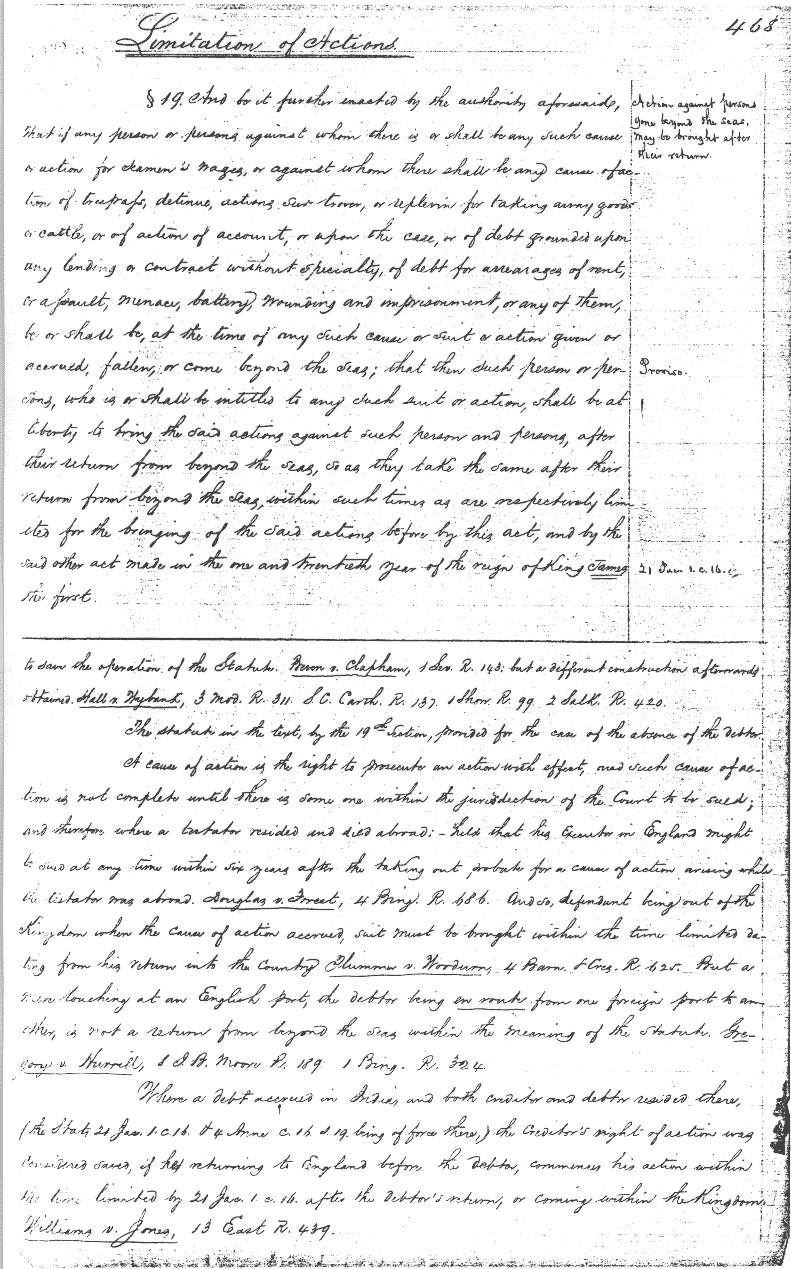 468
Limitation of Actions.
§ 19. And be it further enacted by the authority aforesaid,
that if any person or persons against whom there is or shall be any such cause
or action for seamen's wages, or against whom there shall be any cause of ac-
tion of trespass, detinue, actions sur trover, or replevin for taking away goods
or cattle, or of action of account, or upon the case, or of debt grounded upon
any lending or contract without specialty, of debt for arrearages of rent,
or assault, menace, battery, wounding and imprisonment, or any of them,
be or shall be, at the time of any such cause or suit or action given or
accrued, fallen, or come beyond the seas; that then such person or per-
sons, who is or shall be intitled to any such suit or action, shall be at
liberty to bring the said actions against such person and persons, after
their return from beyond the seas, so as they take the same after their
return from beyond the seas, within such times as are respectively lim-
ited for the bringing of the said actions before by this act, and by the
said other act made in the one and twentieth year of the reign of King James
the first.
Action against persons
gone beyond the seas,
may be brought after
their return.
Proviso.
21 Jac. 1. c. 16.
to save the operation of the Statute. v. Clapham, 1 Lev. R. 143: but a different construction afterwards
obtained. Hall v. Wybank, 3 Mod. R. 311. S.C. Carth. R. 137. 1 Show. R. 99. 2 Salk. R. 420.
The statute in the text, by the 19th Section, provided for the case of the absence of the debtor.
A cause of action is the right to prosecute an action with effect, and such cause of ac-
tion is not complete until there is some one within the jurisdiction of the Court to be sued;
and therefore where a testator resided and died abroad: - held that his Executor in England might
be sued at any time within six years after the taking out probate for a cause of action arising while
the testator was abroad. Douglas v. Forrest, 4 Bing. R. 686. And so, defendant being out of the
Kingdom when the cause of action accrued, suit must be brought within the time limited da-
ting from his return into the Country Plummer v. Woodurn, 4 Barn. & Cres. R. 625. But a
mere touching at an English port, the debtor being en route from one foreign port to an-
other, is not a return from beyond the seas within the meaning of the statute. Gre-
gory v. Hurrill, 8 J. B. Moore R. 189. 1 Bing. R. 324.
Where a debt accrued in India, and both creditor and debtor resided there,
(the Stats. 21 Jac. 1. c. 16. & 4 Anne c. 16. s. 19. being of force there,) the Creditor's right of action was
considered saved, if he returning to England before the debtor, commences his action within
the time limited by 21 Jac. 1. c. 16. after the debtor's return, or coming within the Kingdom.
Williams v. Jones, 13 East R. 439.